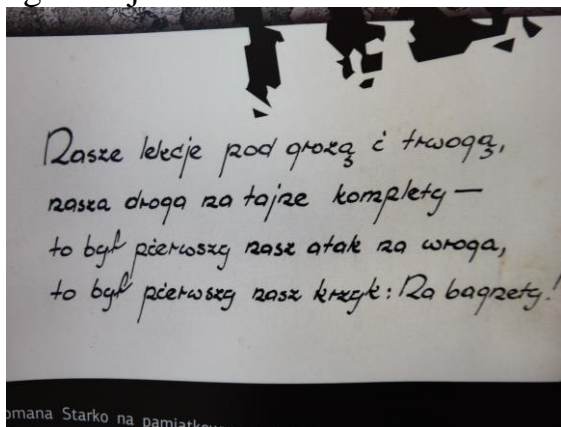 Nasze lekcje pod grozą i trwogą,
nasza droga na tajne komplety —
to był pierwszy nasz atak na wroga,
to był pierwszy nasz krzyk: Na bagnety!
Starko na